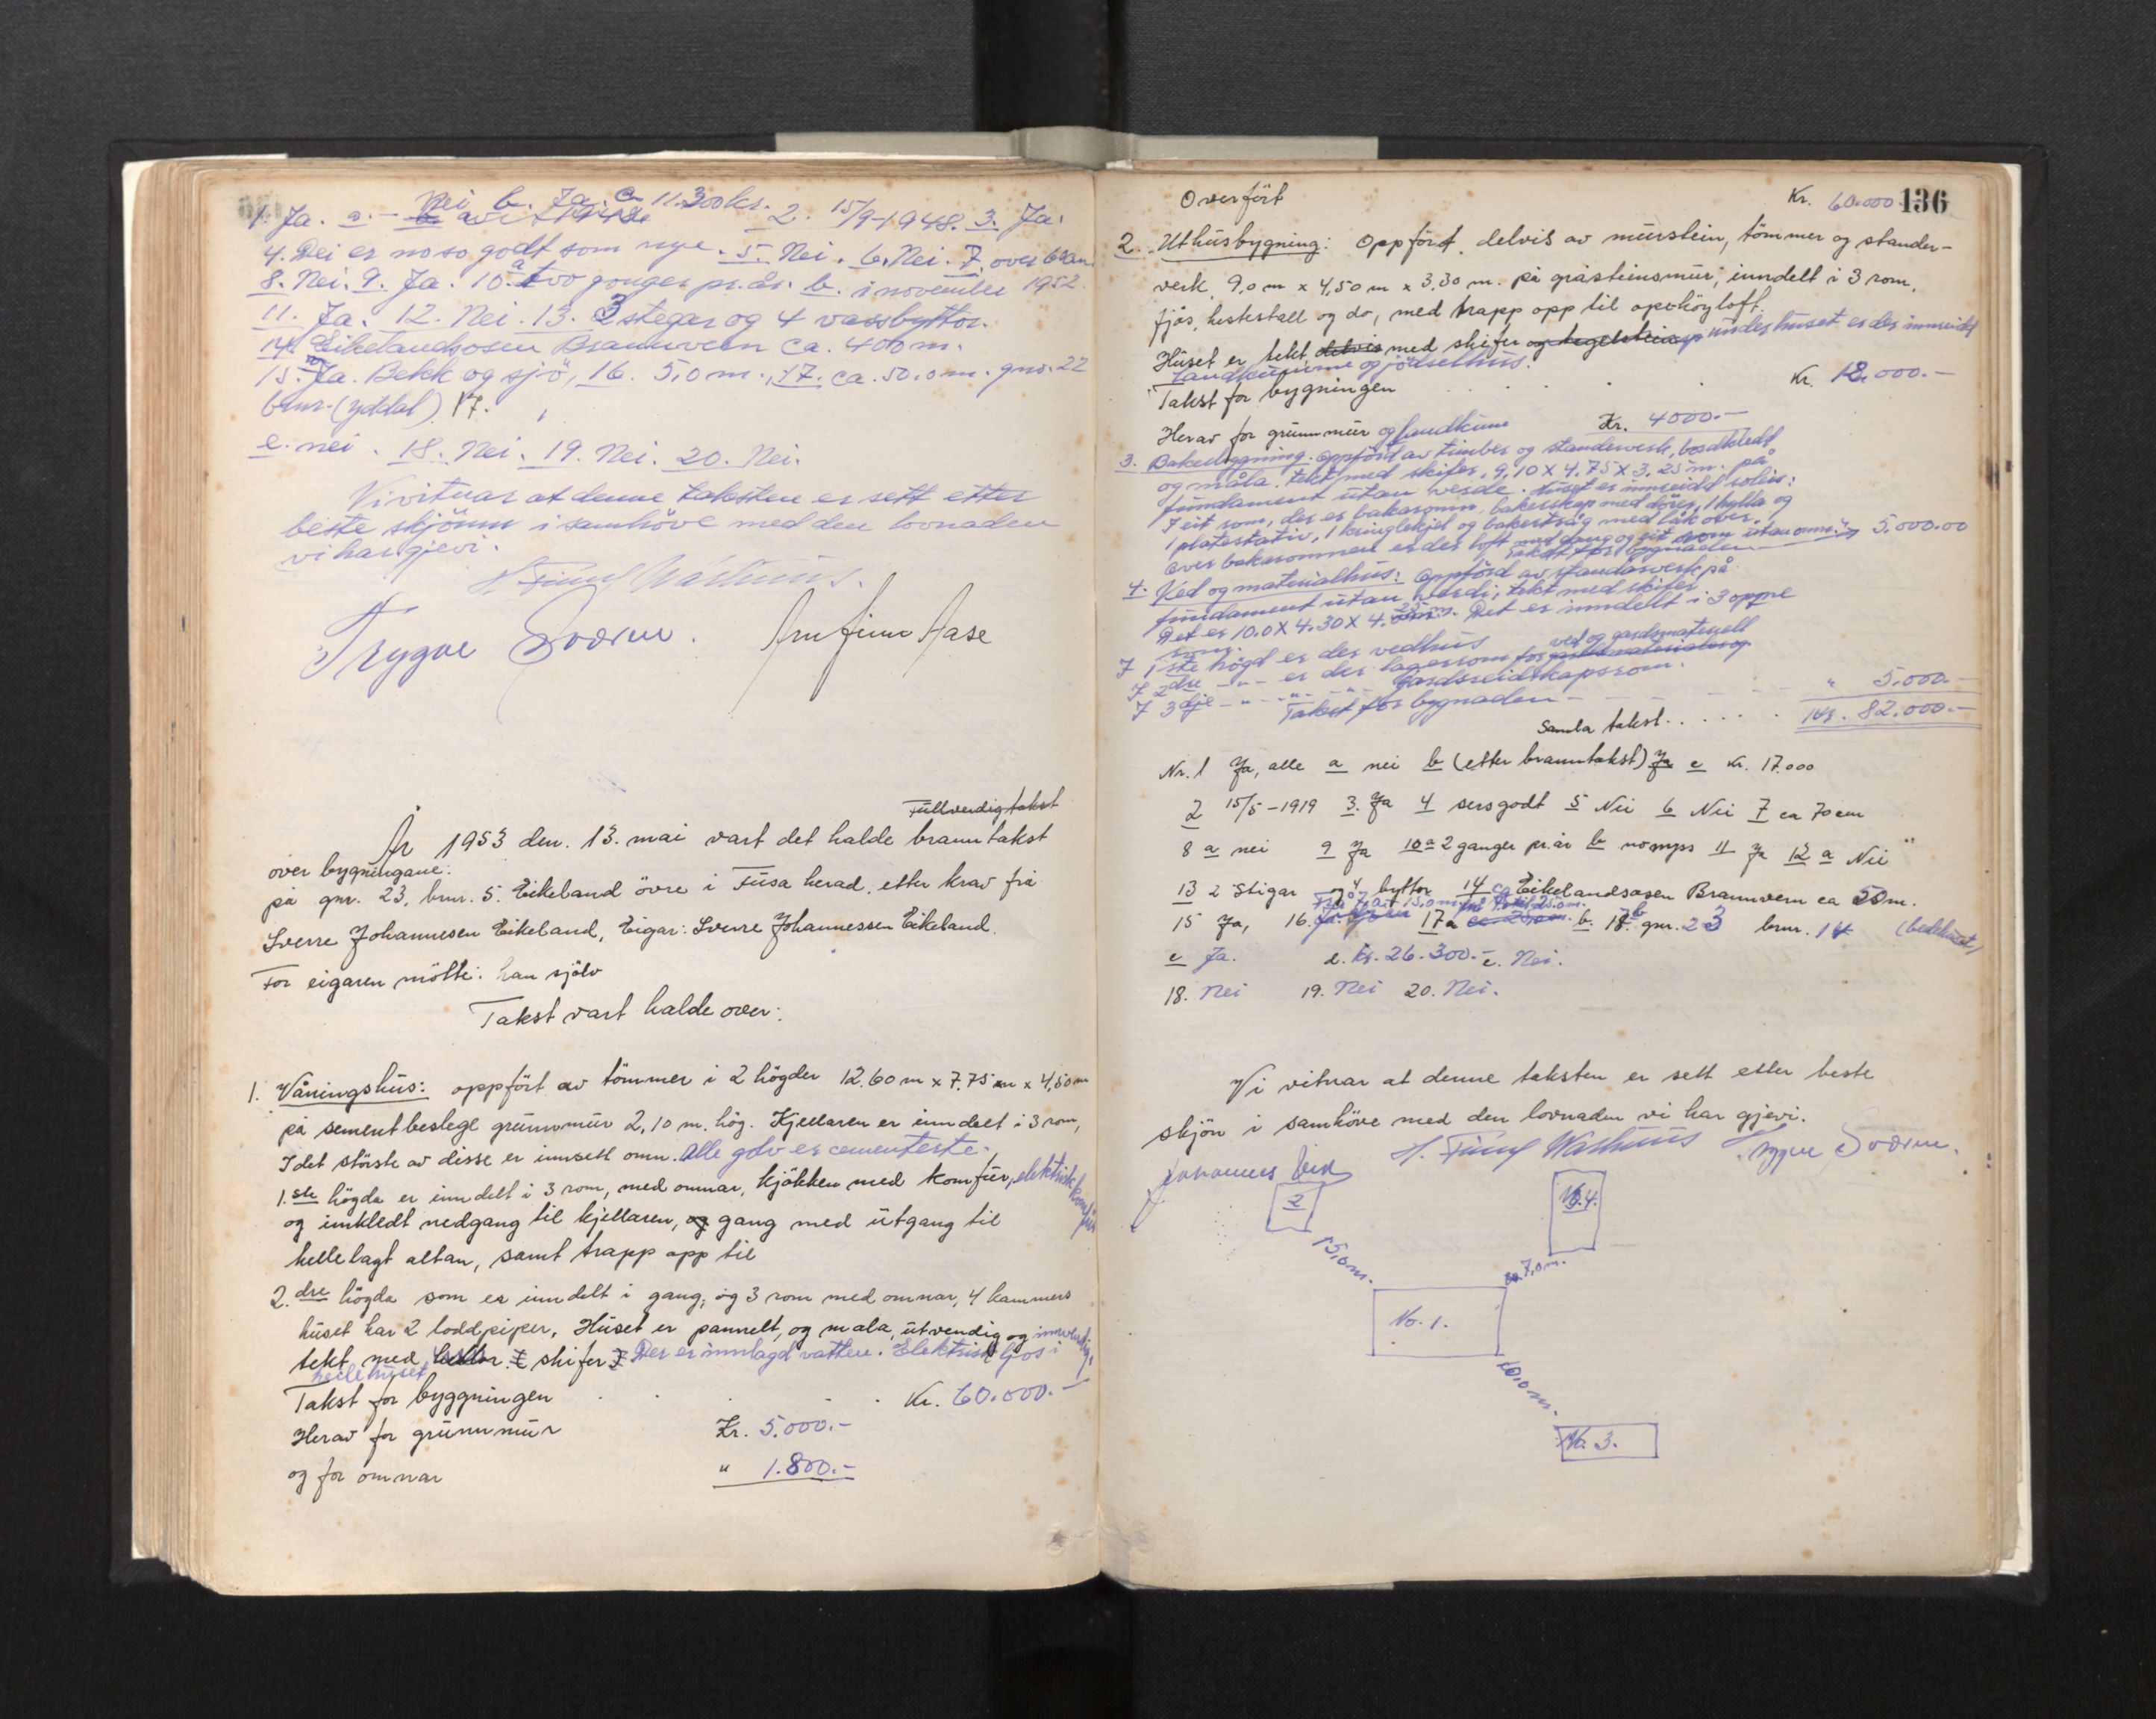 1. Ja. a. - Nei b. Ja. c. 11.300 kr. 2. 15/9-1948. 3. Ja.
4. Dei er noso godt som nye. 5. Nei. 6. Nei. 7. over 60 cm
8. Nei. 9. Ja. 10. a two gonger pr. år. b. i november 1952.
11. Ja. 12. Nei. 13. 3 stegar og 4 vassbyttor.
14. Eikelandsosen Brannvern ca. 400 m.
15. Ja. Bekk og sjö, 16. 5,0 m., 17. ca. 50,0 m. gnr. 22
bnr. (yddal) 17.
e. nei. 18. Nei. 19. Nei. 20. Nei.
Vi vitnar at denne taksten er sett etter
beste skjönn i samhöve med den lovnaden
vi har gjevi.
Trygve Arnfinn Aase
Fullverdigtakst
År 1953 den. 13. mai vart det halde branntakst
over bygningane:
på gnr. 23, bnr. 5. Eikeland övre i Fusa herad. etter krav frå
Sverre Johannesen Eikeland, Eigar: Sverre Johannessen Eikeland.
For eigaren mötte: han sjölv
Takst vart halde over:
1. Våningshus: oppfört av tömmer i 2 högder 12.60 m x 7.75 m x 4,50 m
på sement beslege grunnmur 2,10 m. hög. Kjellaren er inndelt i 3 rom,
I det störste av disse er innsett omn. Alle golv er cementerte.
1.ste högda er inndelt i 3 rom, med omnar, kjökken med komfur, elektrisk komfur
og innkledt nedgang til kjellaren, og gang med utgang til
hellelagt altan, samt trapp opp til
2.dre högda som er inndelt i gang, og 3 rom med omnar, 4 kammers
huset har 2 loddpiper, Huset er pannelt, og mala, utvendig og innvendig,
tekt med skifer Der er innlagd vatten. Elektrisk ljos i
heile huset
Takst for byggningen . . . Kr. 60.000.-
Herav for grunnmur Kr. 5.000.-
og for omnar " 1.800.-
Overfört Kr. 60.000 136
2. Uthusbygning: Oppfört, delvis av murstein, tömmer og stander-
verk, 9,0 m x 4,50 m x 3,30 m. på gråsteinsmur, inndelt i 3 rom,
fjös, hestestall og do, med trapp opp til höyloft.
Huset er tekt delvis med skifer og tegelstein under huset er der innreidd
landkumme og jödselhus.
Takst for bygningen . . . Kr. 12.000.-
Herav for grunnmur og landkum Kr. 4000.-
3. Bakebygning. oppfört av timber og standerverk, bordkledt
og måla. tekt med skifer, 9,10 x 4.75 x 3,25 m. på
fundament utan verde. Huset er innreidd soleis:
I eit rom, der er bakaromn, bakerskap med dörer, 1 hylla og
1 platestativ, 1 kringlekjel og bakertråg med låk over.
Over bakarommen er der loft med gang og eit rom utan omn.
Takst for bygnaden " 5.000.00
4. Ved og materialhus: Oppförd av standarverk på
fundament utan verdi, tekt med skifer
Det er 10.0 x 4.30 x 4. 25 m. Det er inndelt i 3 oppne
rom.
I 1ste högd er der vedhus ved og gardsmateriell
I 2dre -"- er der lagerrom for gardsmaterialer og
I 3dje -"- -"- -"- Gardsreidskapsrom.
Takst for bygnaden - " 5.000.-
Samla takst. . . . . . Kr. 82.000.-
Nr. 1 Ja, alle a nei b (etter branntakst) Ja c Kr. 17.000
2 15/5-1919 3. Ja 4 sers godt 5 Nei 6 Nei 7 ca 70 cm
8 a nei 9 Ja 10 a 2 ganger pr. år b nomyss 11 Ja 12 a Nei
13 2 Stigar og 4 byttor 14 ca Eikelandsosen Brannvern ca 50 m.
15 Ja, 16. 17 a b. 18. b gnr. 23 bnr. 14 (bedehuset)
c Ja. d. Kr. 26.300.- e. Nei.
18. Nei 19. Nei 20. Nei.
Vi vitnar at denne taksten er sett etter beste
skjön i samhöve med den lovnaden vi har gjevi.
Johannes Trygve
2
No. 4.
15,0 m.
ca. 7,0 m.
No. 1.
10,0 m.
No. 3.